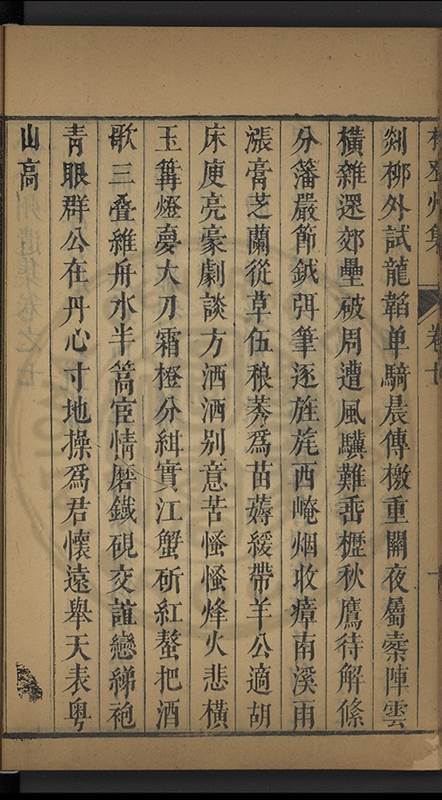 剡柳外試龍韜单騎晨傳檄重關夜屬櫜陣雲
橫雜遝郊壘破周遭風驥難㟁櫪秋鷹待解絛
分籓嚴節鉞弭筆逐旌旄西崦烟收瘴南溪雨
漲膏芝蘭從草伍稂莠爲苗薅緩帶羊公適胡
床庾亮豪劇談方洒洒别意苦慅慅烽火悲橫
玉篝燈憂大刀霜橙分緝實江蟹斫紅螯把酒
歌三叠維舟水半篙宦情磨鐵硯交誼戀綈袍
青眼群公在丹心寸地操爲君懷遠舉天表粤
山高